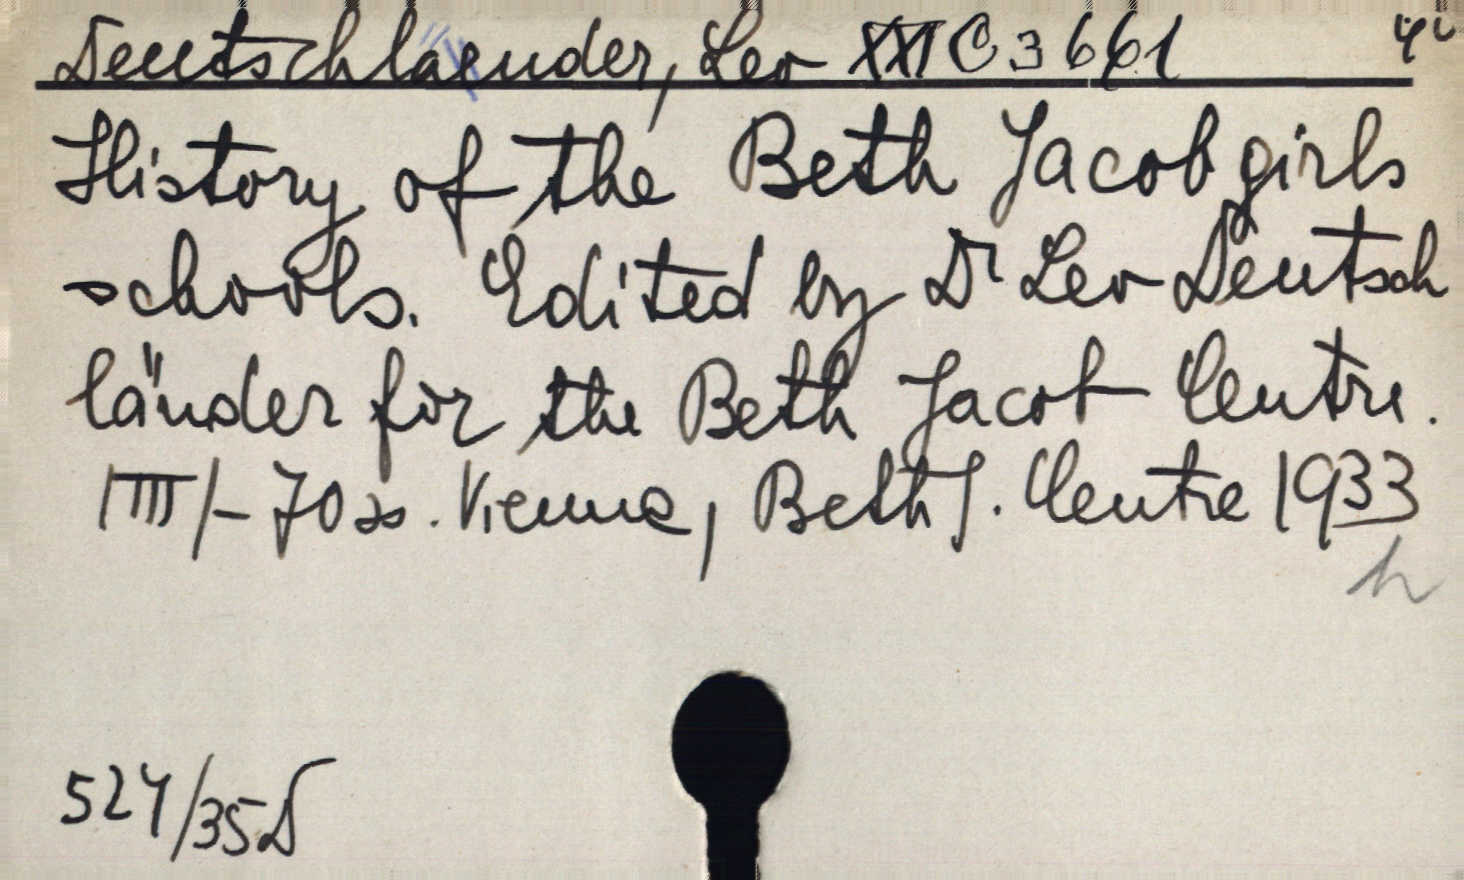 Deutschlaender, Leo XXI C 3661 4°
History of the Beth Jacob girls
schools. Edited by Dr Leo Deutsch
länder for the Beth Jacob Centre.
/-70 ss. Vienna, Beth J. Centre 1933
h
524/35 D